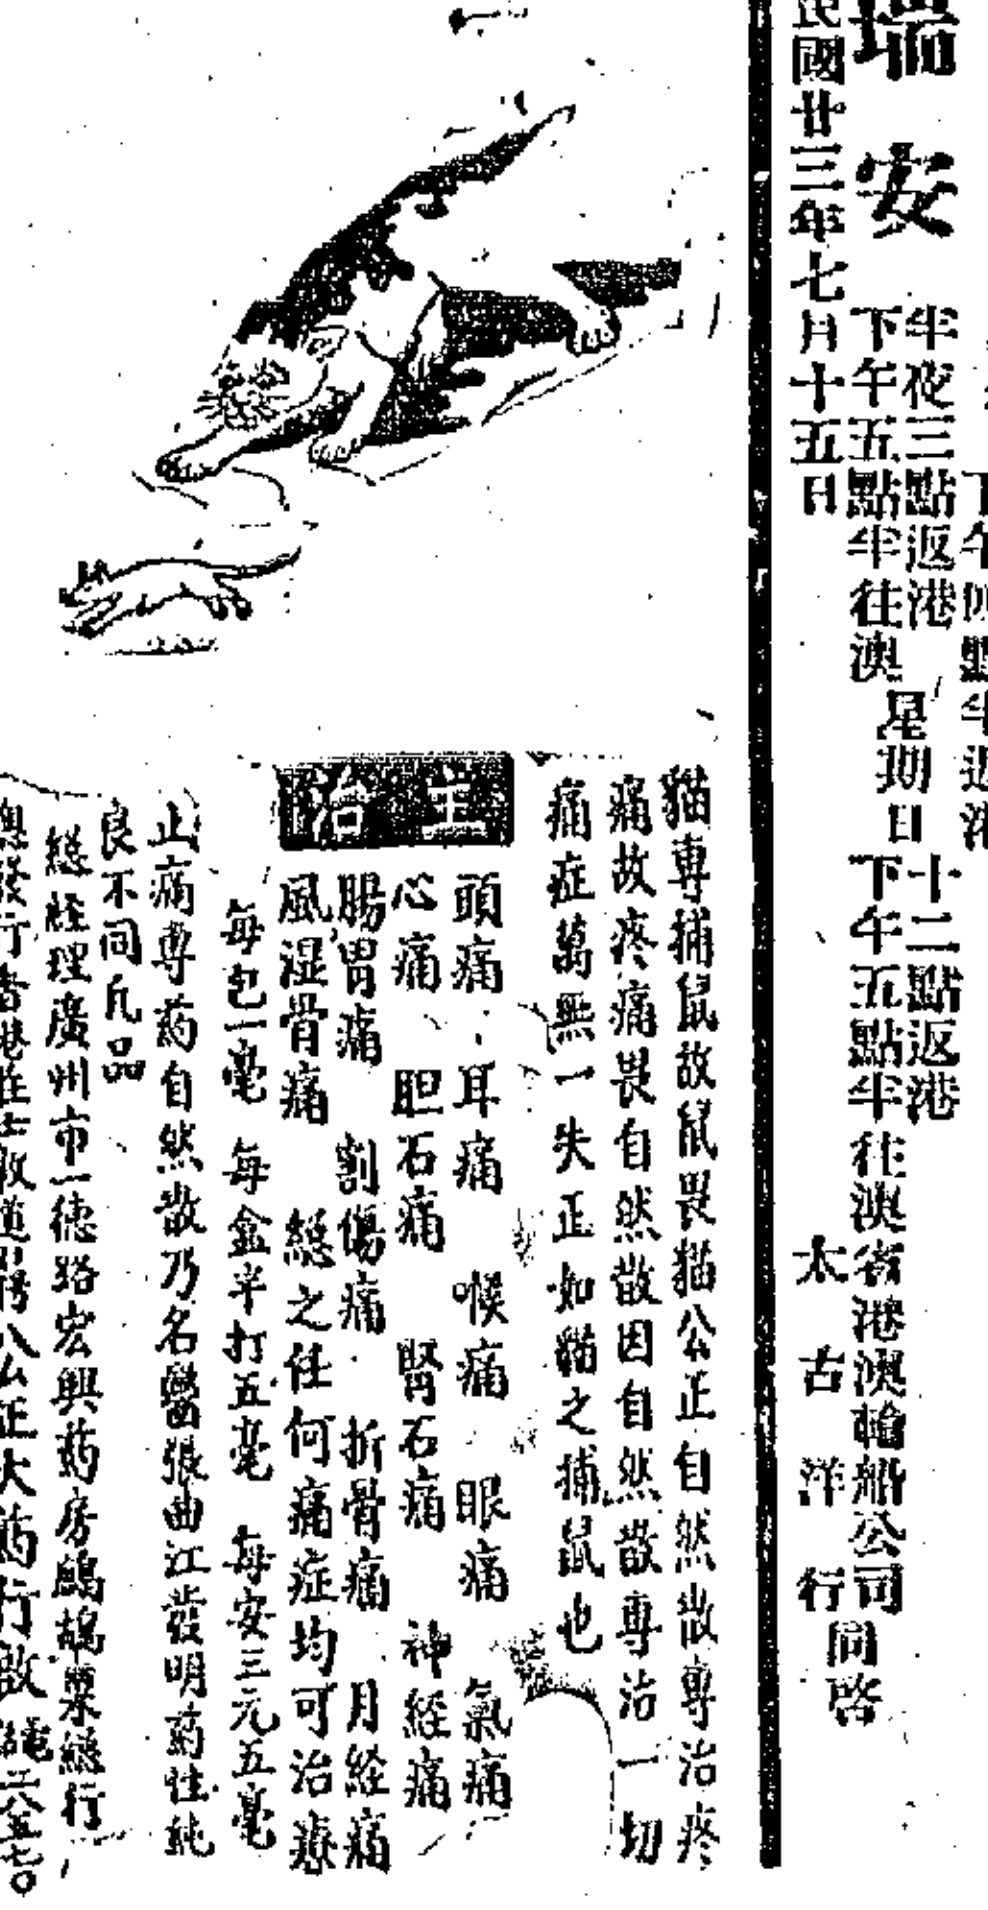 下午四點半返港
瑞安
半夜三點返港
下午五點半往澳
星期日
十二點返港
下午五點半往澳
省港澳輪船公司
太古洋行
同啓
民國廿三年七月十五日
貓專捕鼠故鼠畏貓公正自然散專治疼
痛故疼痛畏自然散因自然散專治一切
痛症萬無一失正如貓之捕鼠也
主治
頭痛 耳痛 喉痛 眼痛 氣痛
心痛 胆石痛 腎石痛 神經痛
腸胃痛 割傷痛 折骨痛 月经痛
風湿骨痛 総之任何痛症均可治療
每包一毫 每盒半打五毫 每安三元五毫
止痛專药自然散乃名醫張曲江發明药性純
良不同凡品
総経理廣州市一德路宏興药房鷓鴣菜総行
公正大药行啟